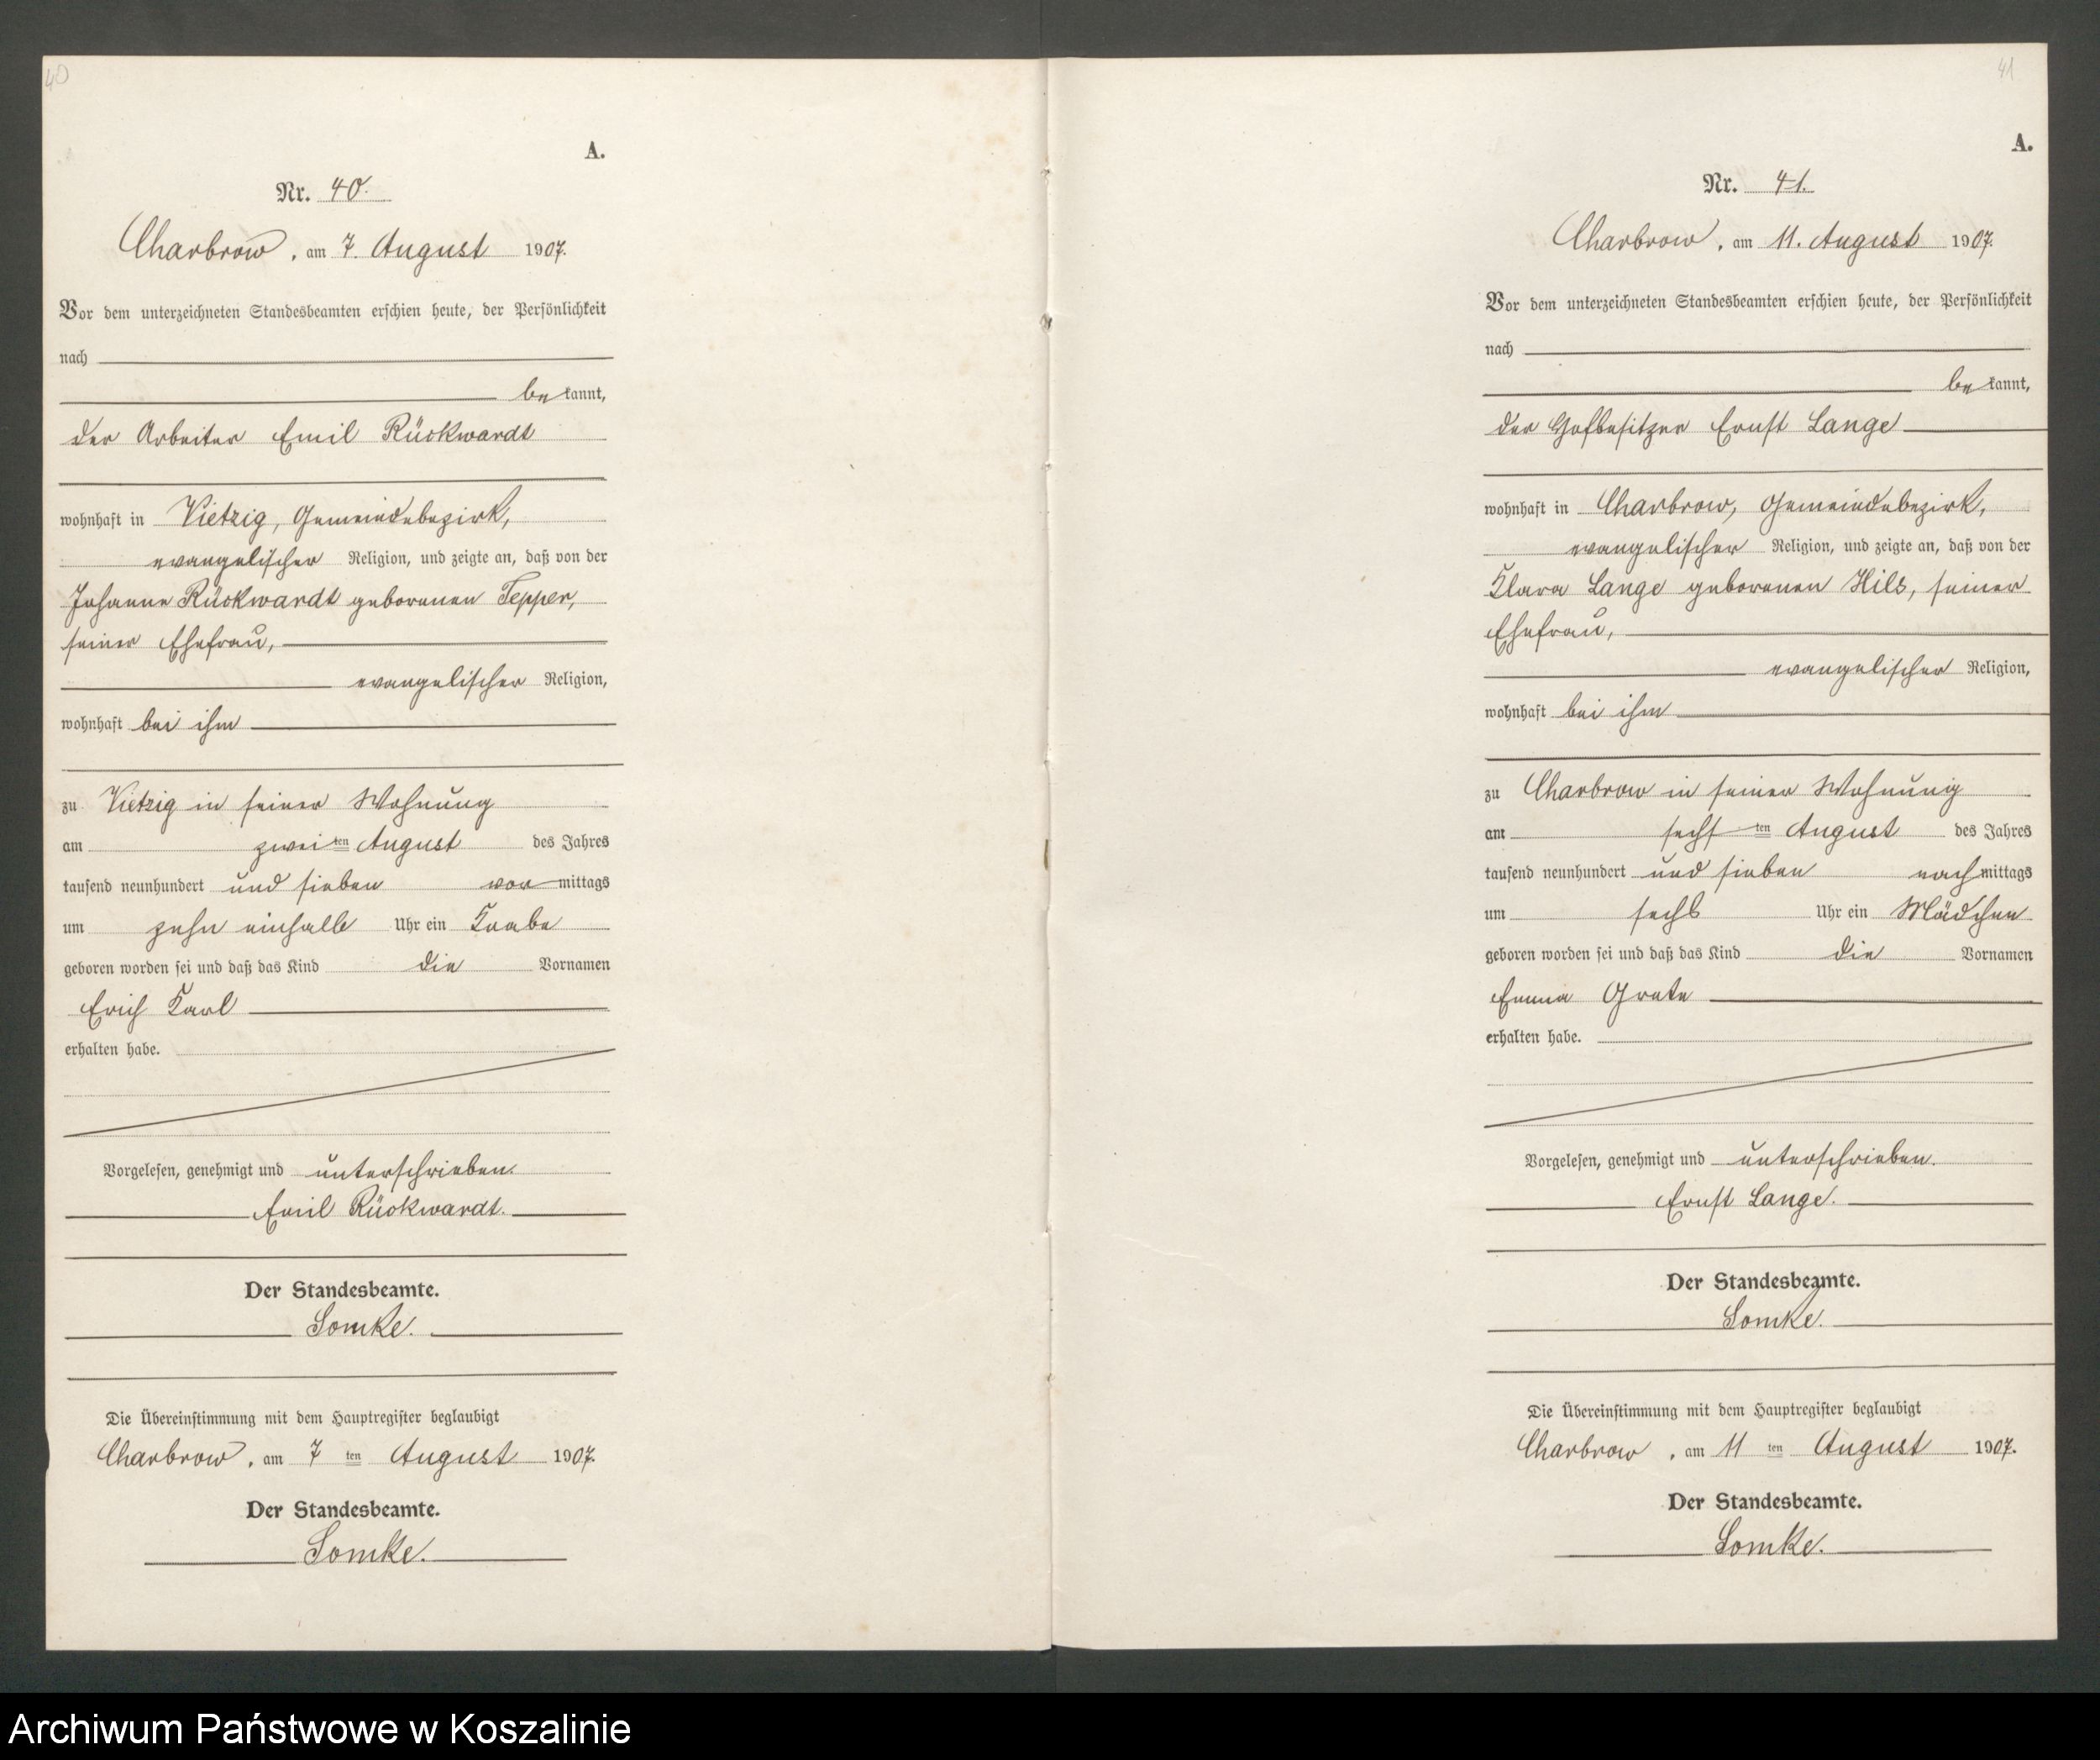 40
A.
Nr. 40.
Charbrow, am 7. August 1907.
Vor dem unterzeichneten Standesbeamten erschien heute, der Persönlichkeit
nach
bekannt,
der Arbeiter Emil Rückwardt
wohnhaft in Vietzig, Gemeindebezirk,
evangelischer Religion, und zeigte an, daß von der
Johanne Rückwardt geborenen Tepper,
seiner Ehefrau,
evangelischer Religion,
wohnhaft bei ihm
zu Vietzig in seiner Wohnung
am zweiten August des Jahres
tausend neunhundert und sieben vormittags
um zehn einhalb Uhr ein Knabe
geboren worden sei und daß das Kind die Vornamen
Erich Karl
erhalten habe.
Vorgelesen, genehmigt und unterschrieben.
Emil Rückwardt.
Der Standesbeamte.
Somke.
Die Übereinstimmung mit dem Hauptregister beglaubigt
Charbrow, am 7 ten August 1907.
Der Standesbeamte.
Somke.
41
A.
Nr. 41.
Charbrow, am 11. August 1907.
Vor dem unterzeichneten Standesbeamten erschien heute, der Persönlichkeit
nach
bekannt,
der Hofbesitzer Ernst Lange
wohnhaft in Charbrow, Gemeindebezirk,
evangelischer Religion, und zeigte an, daß von der
Klara Lange geborenen Hils, seiner
Ehefrau,
evangelischer Religion,
wohnhaft bei ihm
zu Charbrow in seiner Wohnung
am sechsten August des Jahres
tausend neunhundert und sieben nachmittags
um sechs Uhr ein Mädchen
geboren worden sei und daß das Kind die Vornamen
Emma Grete
erhalten habe.
Vorgelesen, genehmigt und unterschrieben.
Ernst Lange.
Der Standesbeamte.
Somke.
Die Übereinstimmung mit dem Hauptregister beglaubigt
Charbrow, am 11 ten August 1907.
Der Standesbeamte.
Somke.
Archiwum Państwowe w Koszalinie